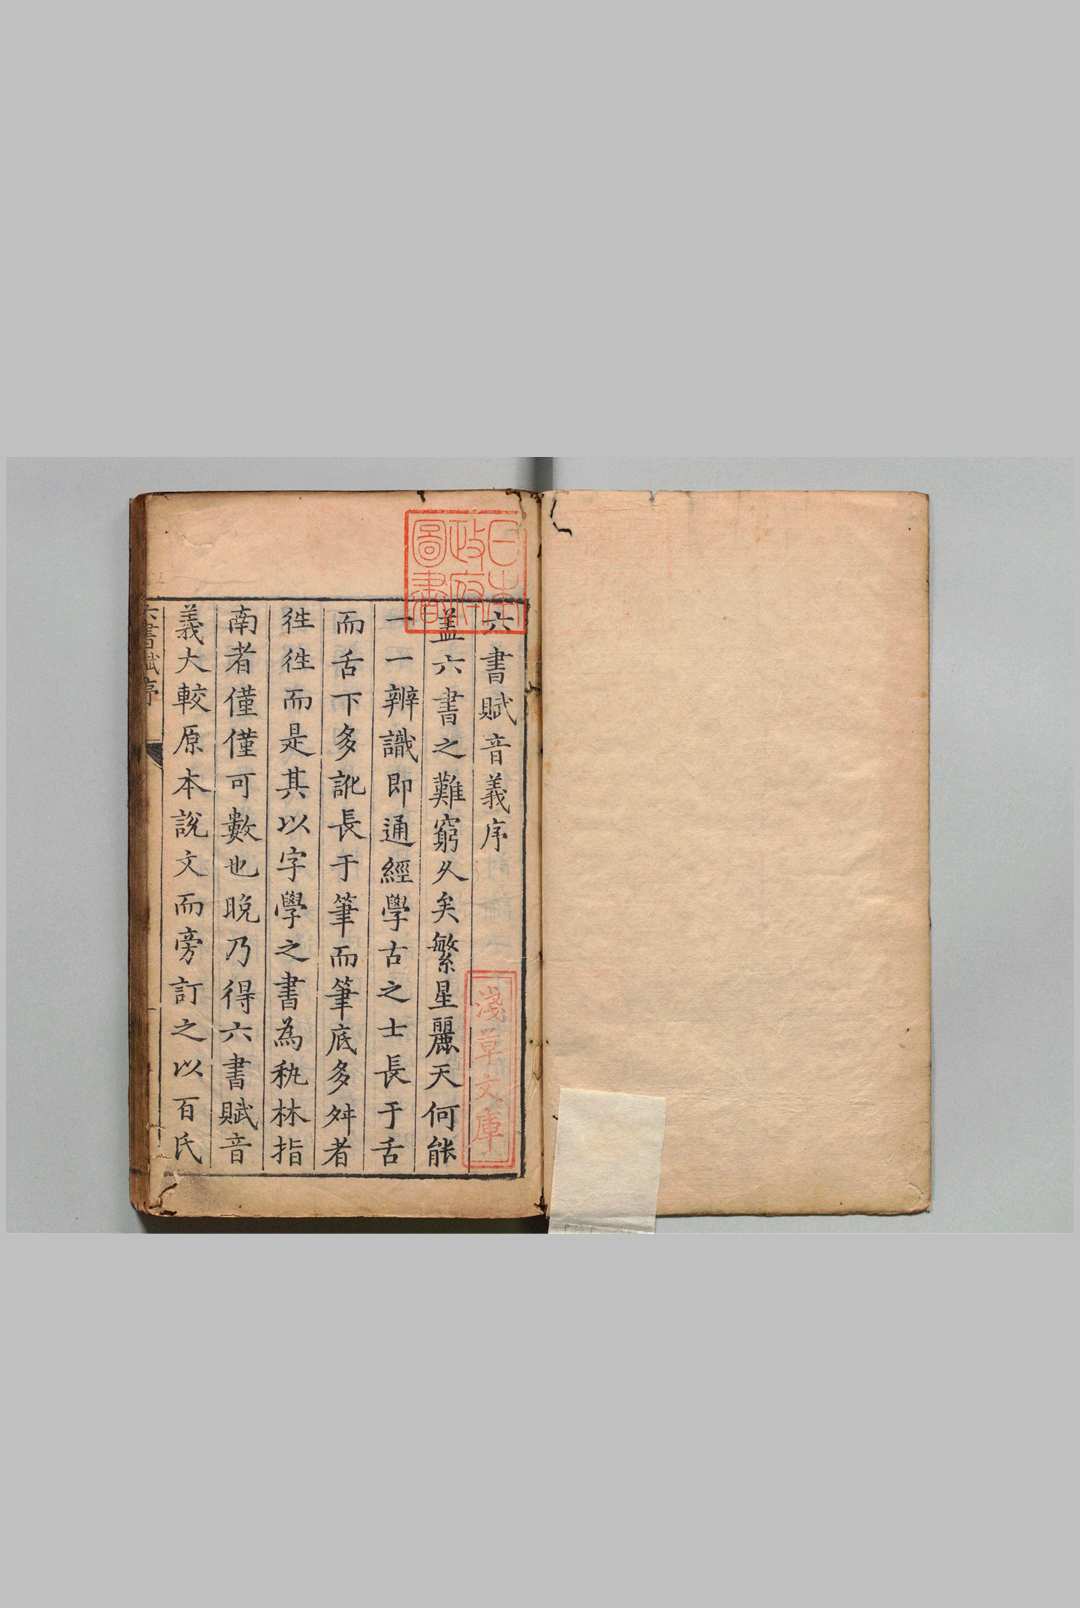 六書賦音義序
蓋六書之難窮久矣繁星麗天何能
一一辨識即通經學古之士長于舌
而舌下多訛長于筆而筆底多舛者
徃徃而是其以字學之書為秇林指
南者僅僅可數也晚乃得六書賦音
義大較原本說文而旁訂之以百氏
六書賦序
日本
政府
圖書
淺草文庫